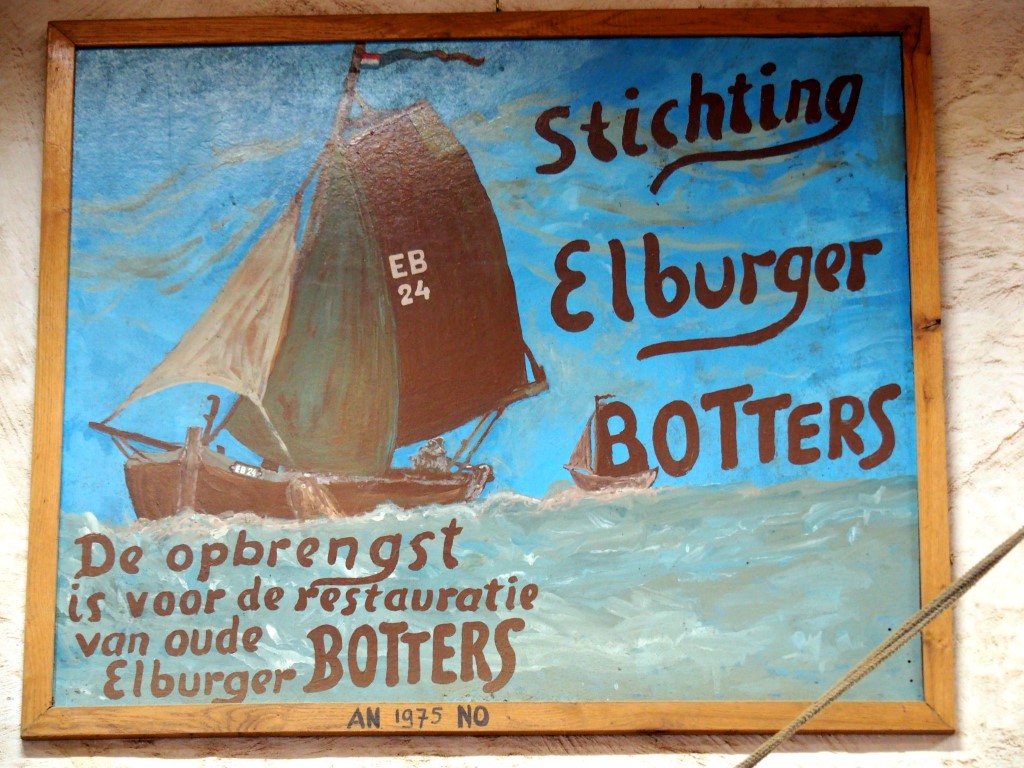 Stichting
Elburger
BOTTERS
EB
24
De opbrengst
is voor de restauratie
van oude
Elburger BOTTERS
AN 1975 NO